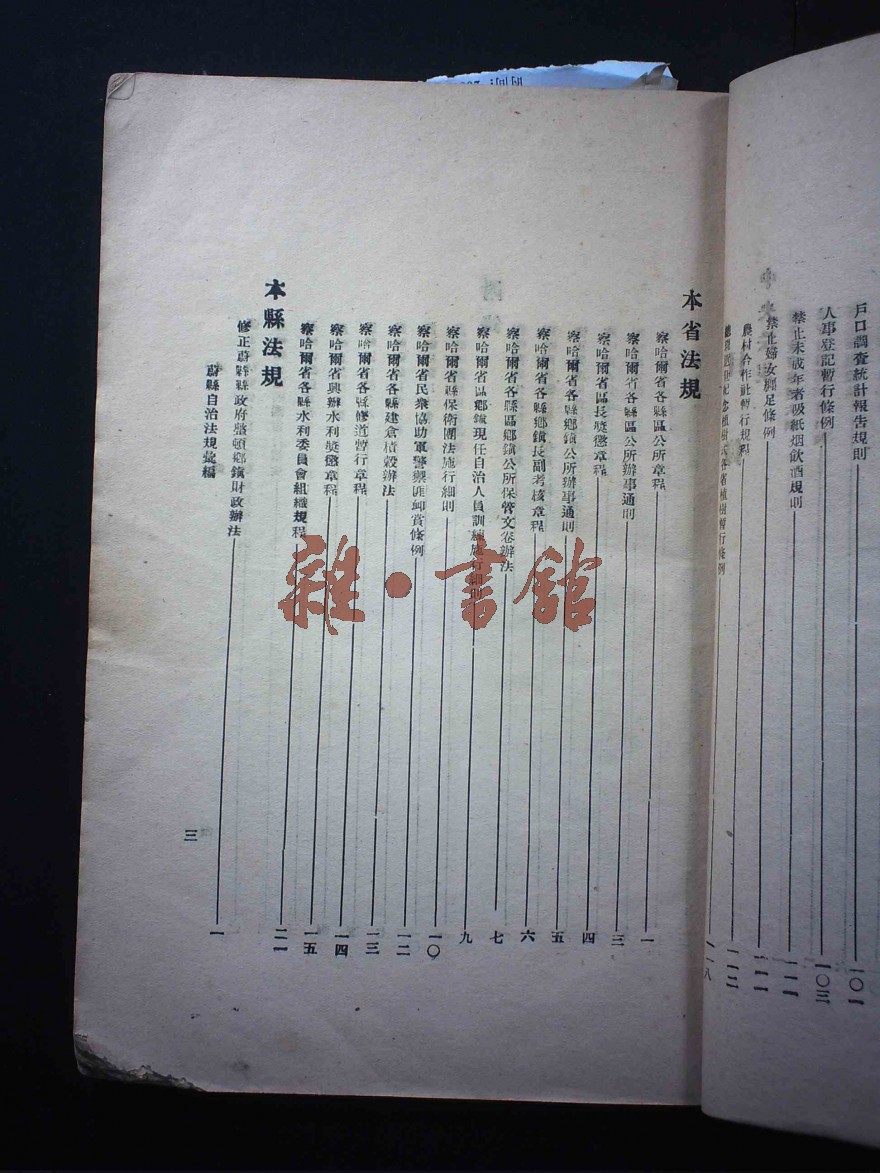 戶口調查統計報告規則 一〇一
人事登記暫行條例 一〇三
禁止未成年者吸紙烟飲酒規則 一一一
禁止婦女纏足條例 一一一
農村合作社暫行規程 一一二
總理逝世紀念植樹式各省植樹暫行條例 一一八
本省法規
察哈爾省各縣區公所章程 一
察哈爾省各縣區公所辦事通則 三
察哈爾省區長獎懲章程 四
察哈爾省各縣鄉鎮公所辦事通則 五
察哈爾省各縣鄉鎮長副考核章程 六
察哈爾省各縣區鄉鎮公所保管文卷辦法 七
察哈爾省區鄉鎮現任自治人員訓練施行細則 九
察哈爾省縣保衛團法施行細則 一〇
察哈爾省民衆協助軍警禦匪卹賞條例 一二
察哈爾省各縣建倉積穀辦法 一三
察哈爾省各縣修道暫行章程 一四
察哈爾省興辦水利獎懲章程 一五
察哈爾省各縣水利委員會組織規程 二一
本縣法規
修正蔚縣縣政府整頓鄉鎮財政辦法 一
蔚縣自治法規彙編
三
雜·書館